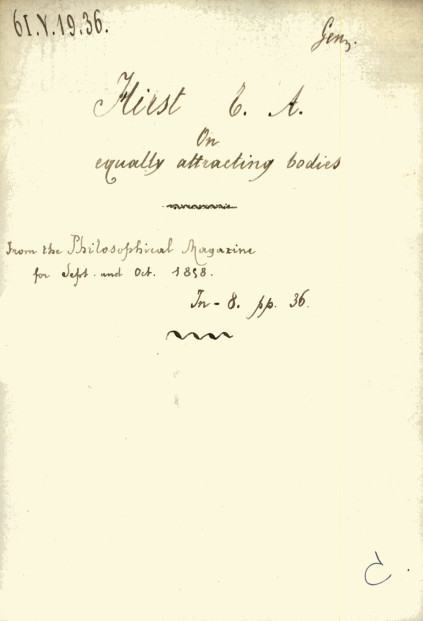 61.V.19.36.
Genz.
Hirst C. A.
On
equally attracting bodies
From the Philosophical Magazine
for Sept. and Oct. 1858.
In-8. pp. 36.
C.